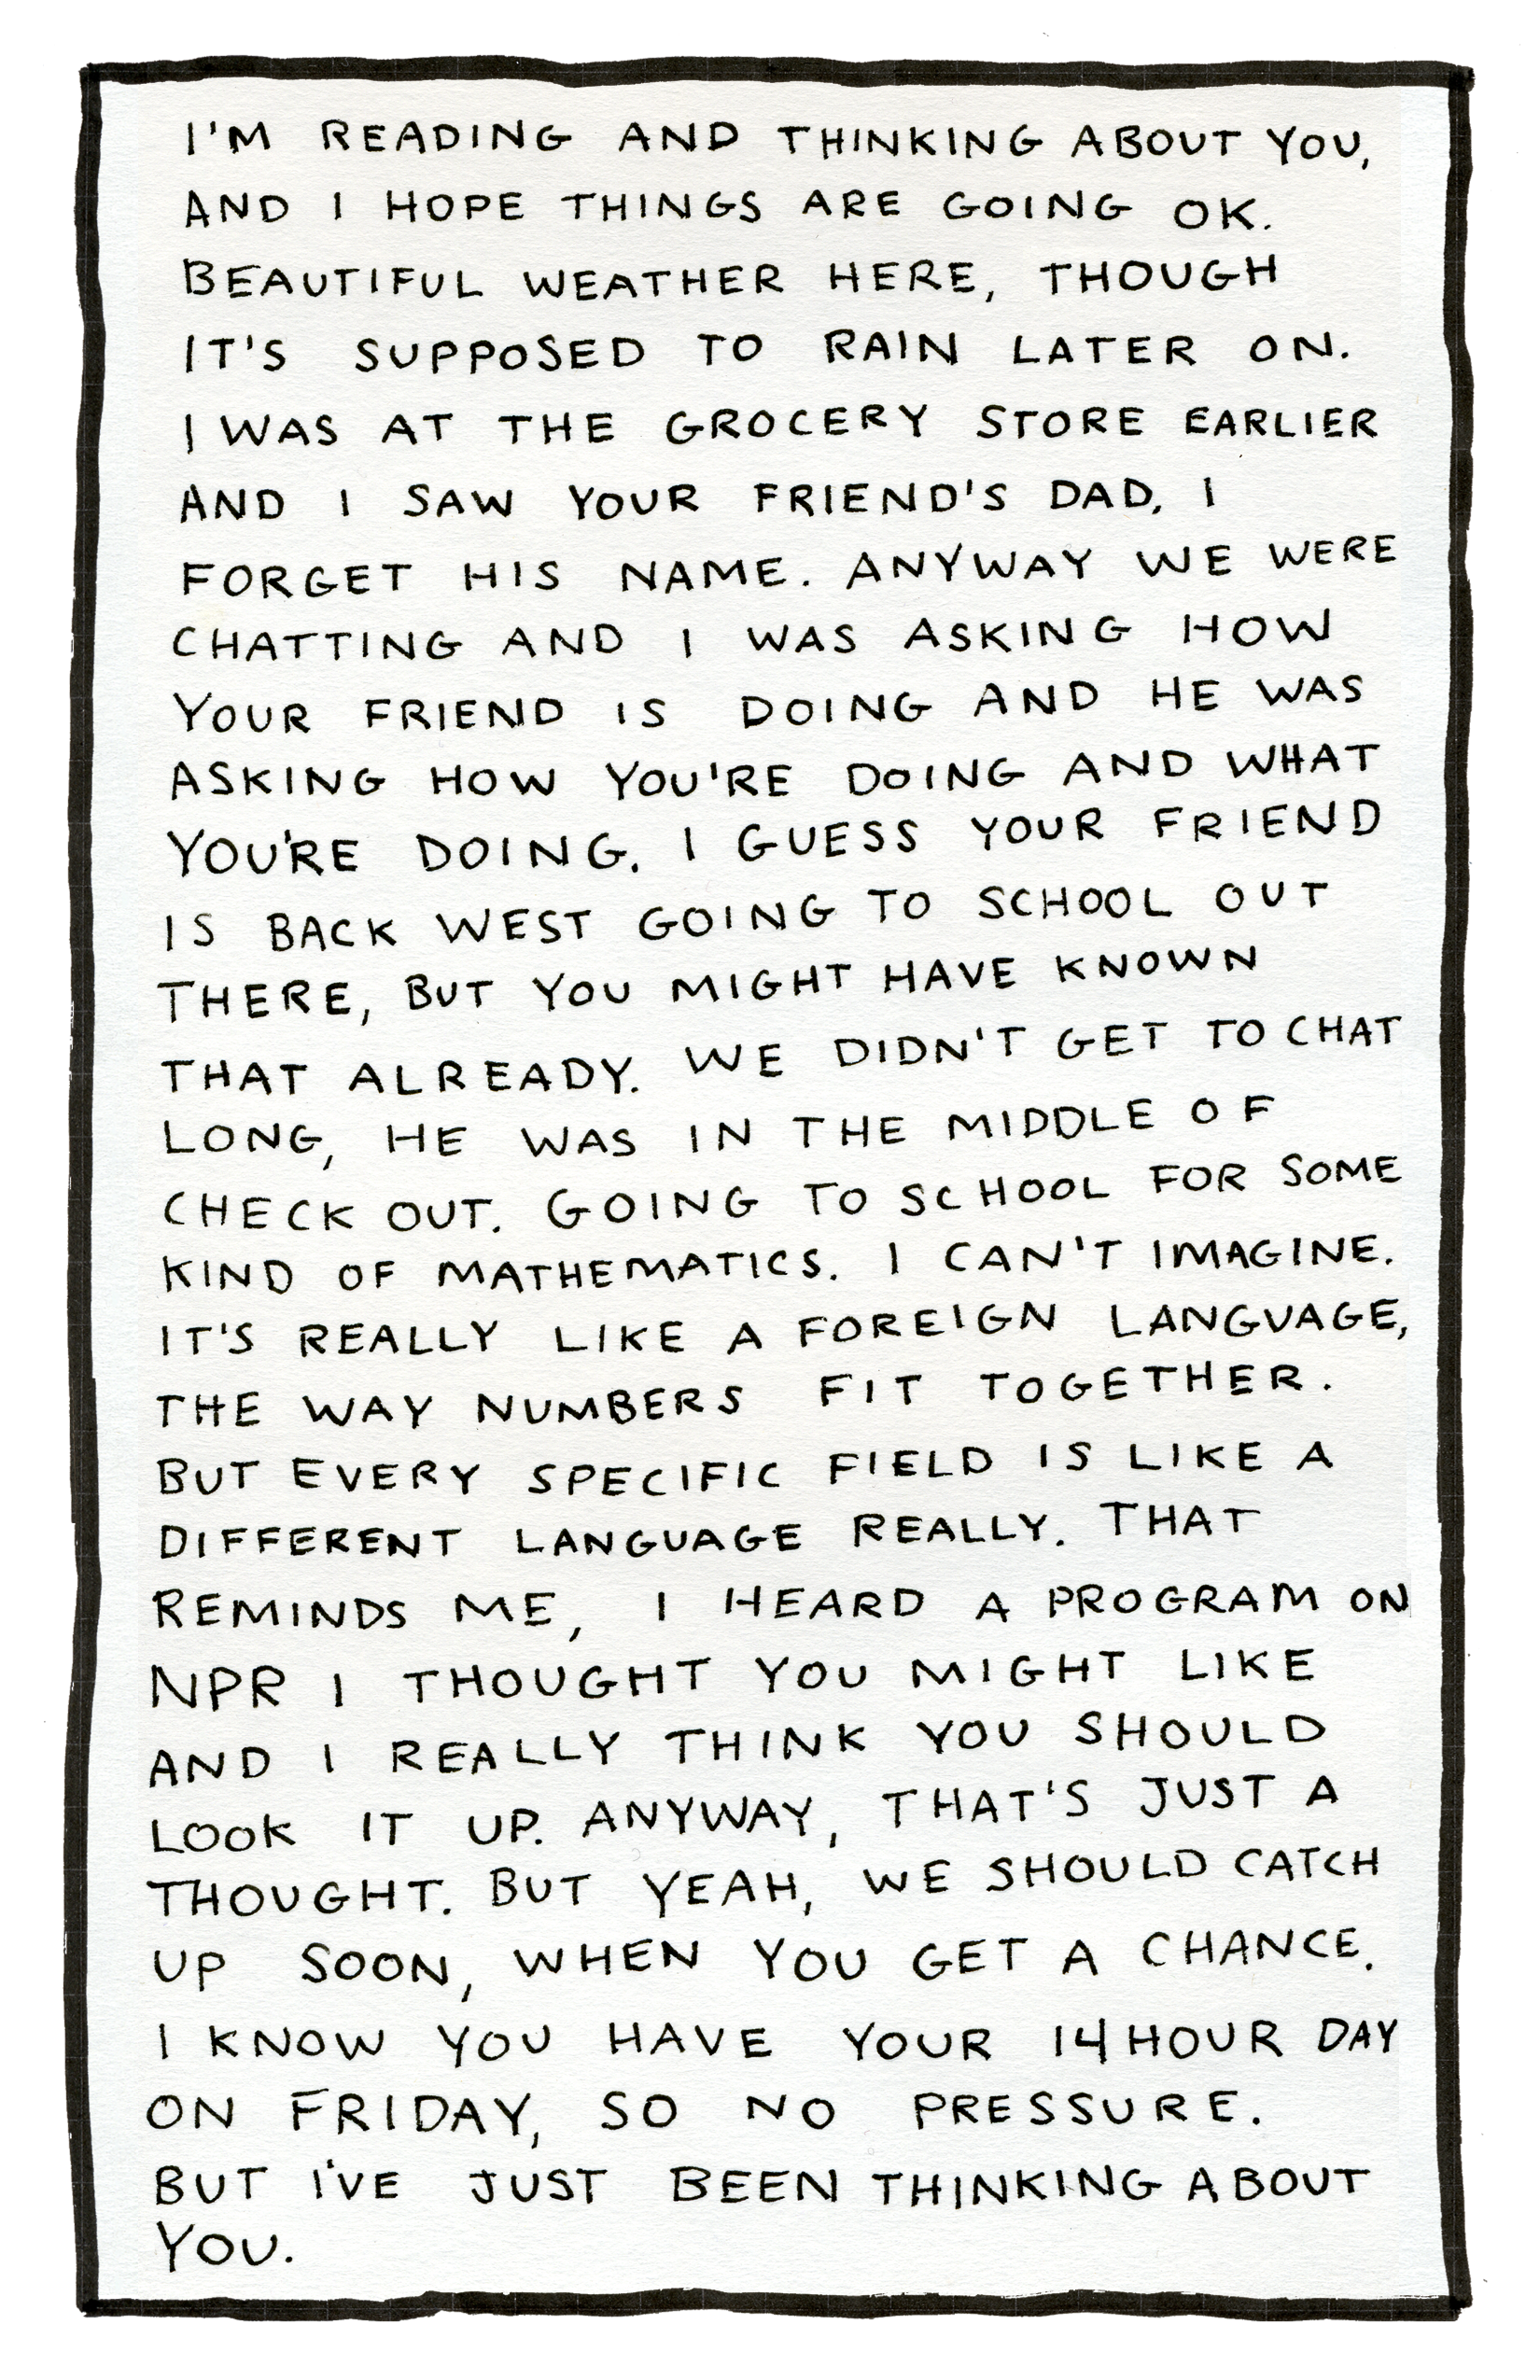 I'M READING AND THINKING ABOUT YOU,
AND I HOPE THINGS ARE GOING OK.
BEAUTIFUL WEATHER HERE, THOUGH
IT'S SUPPOSED TO RAIN LATER ON.
I WAS AT THE GROCERY STORE EARLIER
AND I SAW YOUR FRIEND'S DAD, I
FORGET HIS NAME. ANYWAY WE WERE
CHATTING AND I WAS ASKING HOW
YOUR FRIEND IS DOING AND HE WAS
ASKING HOW YOU'RE DOING AND WHAT
YOU'RE DOING. I GUESS YOUR FRIEND
IS BACK WEST GOING TO SCHOOL OUT
THERE, BUT YOU MIGHT HAVE KNOWN
THAT ALREADY. WE DIDN'T GET TO CHAT
LONG, HE WAS IN THE MIDDLE OF
CHECK OUT. GOING TO SCHOOL FOR SOME
KIND OF MATHEMATICS. I CAN'T IMAGINE.
IT'S REALLY LIKE A FOREIGN LANGUAGE,
THE WAY NUMBERS FIT TOGETHER.
BUT EVERY SPECIFIC FIELD IS LIKE A
DIFFERENT LANGUAGE REALLY. THAT
REMINDS ME, I HEARD A PROGRAM ON
NPR I THOUGHT YOU MIGHT LIKE
AND I REALLY THINK YOU SHOULD
LOOK IT UP. ANYWAY, THAT'S JUST A
THOUGHT. BUT YEAH, WE SHOULD CATCH
UP SOON, WHEN YOU GET A CHANCE.
I KNOW YOU HAVE YOUR 14 HOUR DAY
ON FRIDAY, SO NO PRESSURE.
BUT I'VE JUST BEEN THINKING ABOUT
YOU.